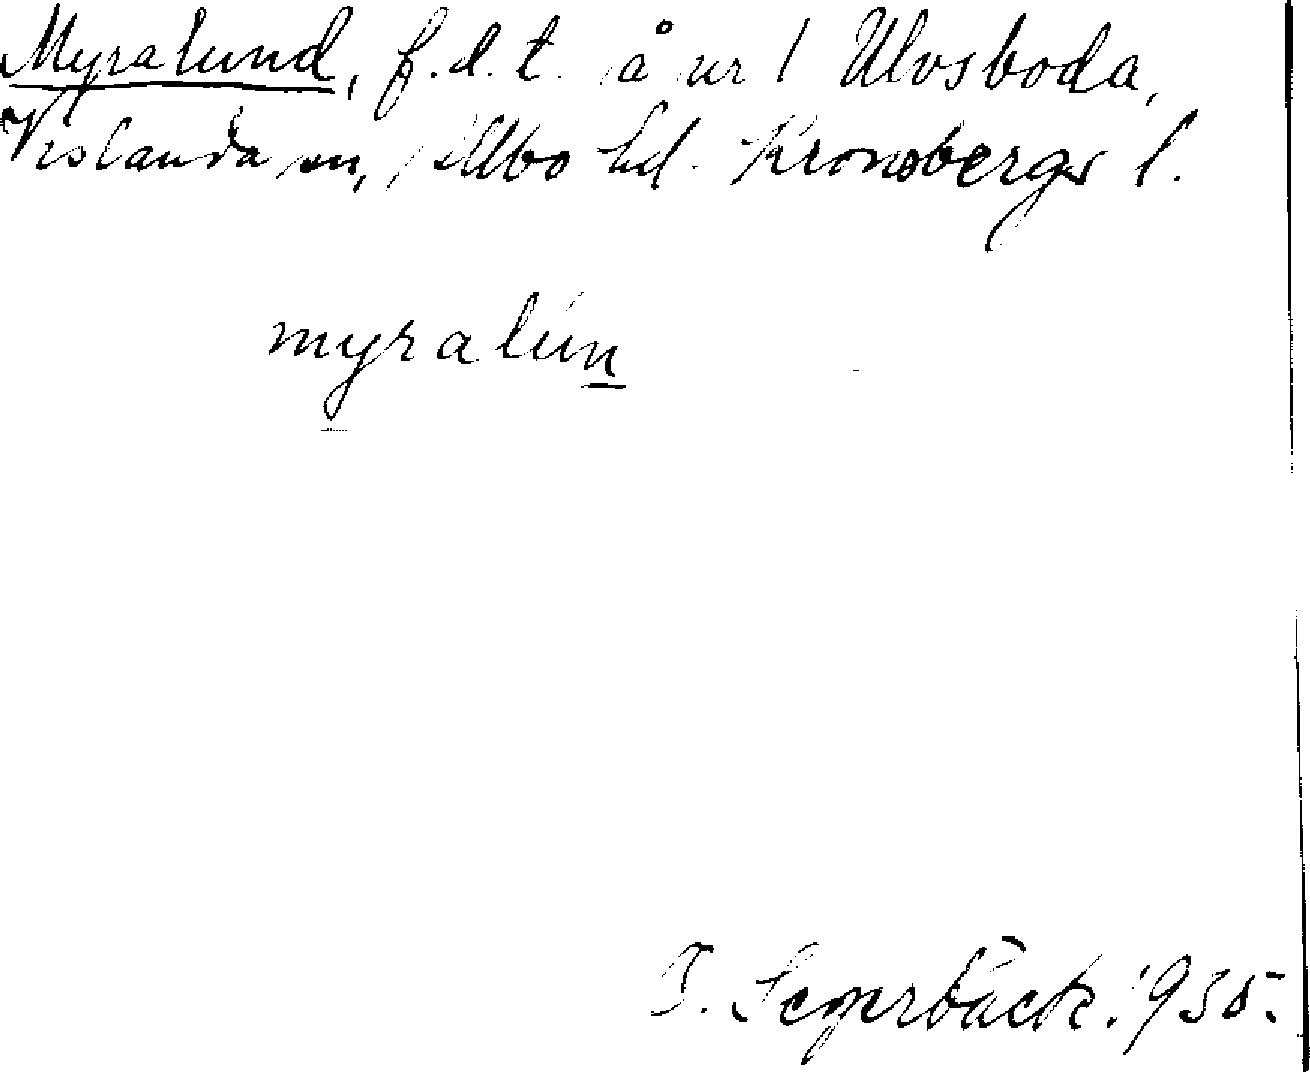 Myralund, f.d.t. å nr 1 Ulvsboda,
Vislanda sn, Allbo hd. Kronobergs l.
myralún
I. Segerbäck. 1935.